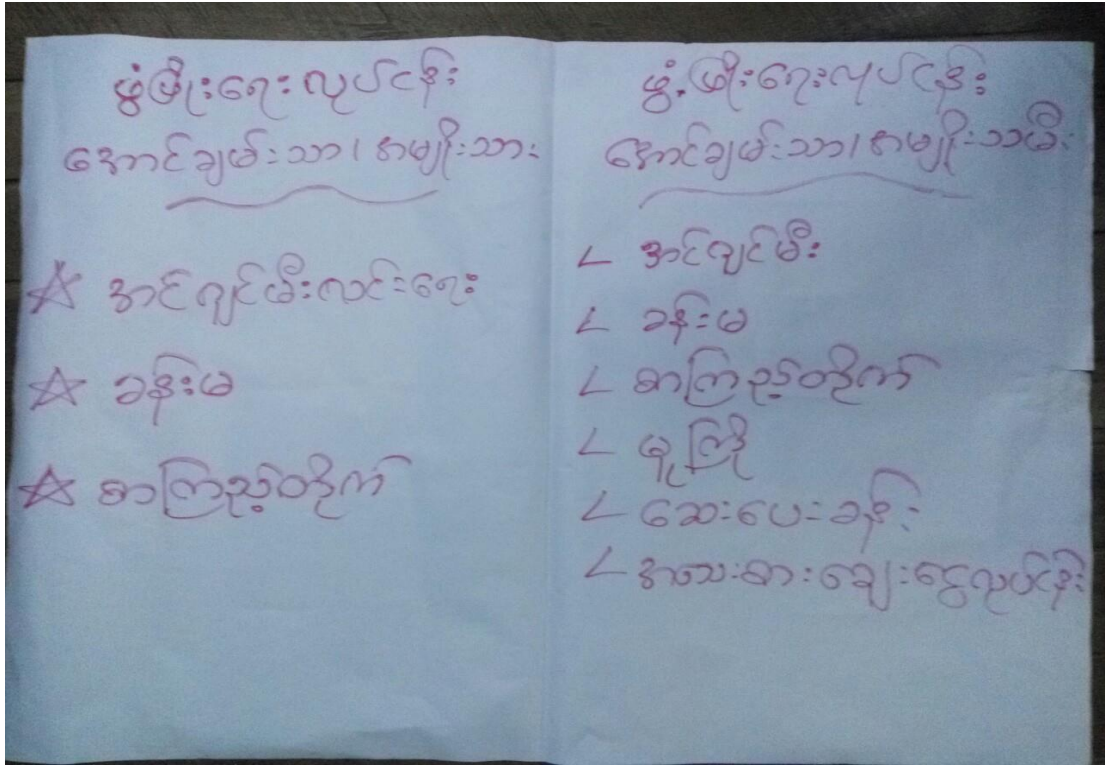 ဖွံဖြိုးရေးလုပ်ငန်း
အောင်ချမ်းသာ၊ အမျိုးသား
အင်ဂျင်မီးလင်းရေး
ခန်းမ
စာကြည့်တိုက်
ဖွံ့ဖြိုးရေးလုပ်ငန်း
အောင်ချမ်းသာ၊ အမျိုးသမီး
အင်ဂျင်မီး
ခန်းမ
စာကြည့်တိုက်
မူကြို
ဆေးပေးခန်း
အသေးစားချေးငွေလုပ်ငန်း